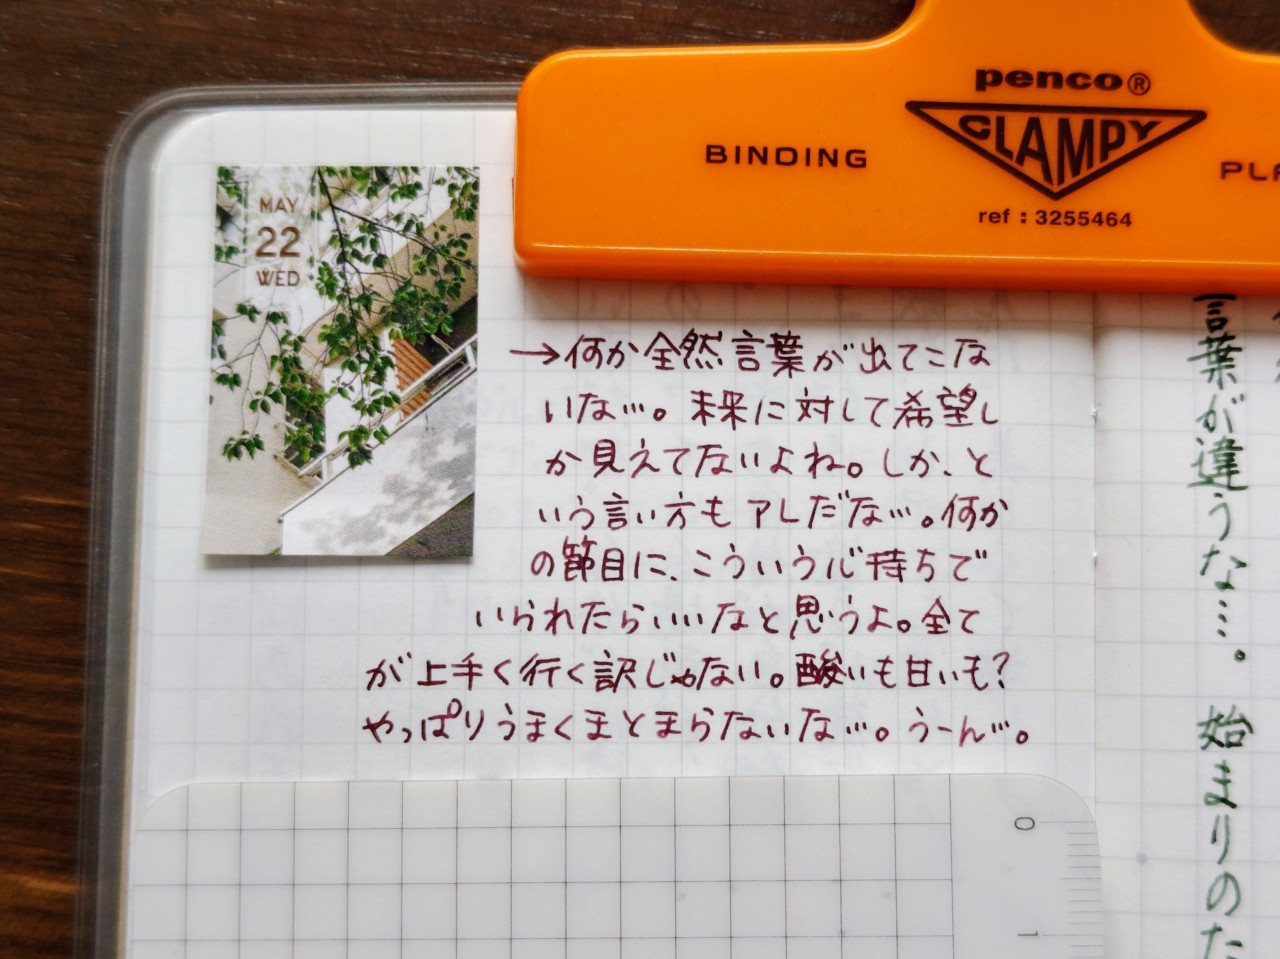 penco®
CLAMPY
BINDING
PLA
ref : 3255464
MAY
22
WED
→何か全然言葉が出てこな
いな…。未来に対して希望し
か見えてないよね。しか、と
いう言い方もアレだな…。何か
の節目に、こういう心持ちで
いられたらいいなと思うよ。全て
が上手く行く訳じゃない。酸いも甘いも?
やっぱりうまくまとまらないな…。うーん…。
言葉が違うな…。始まりのた
0
1